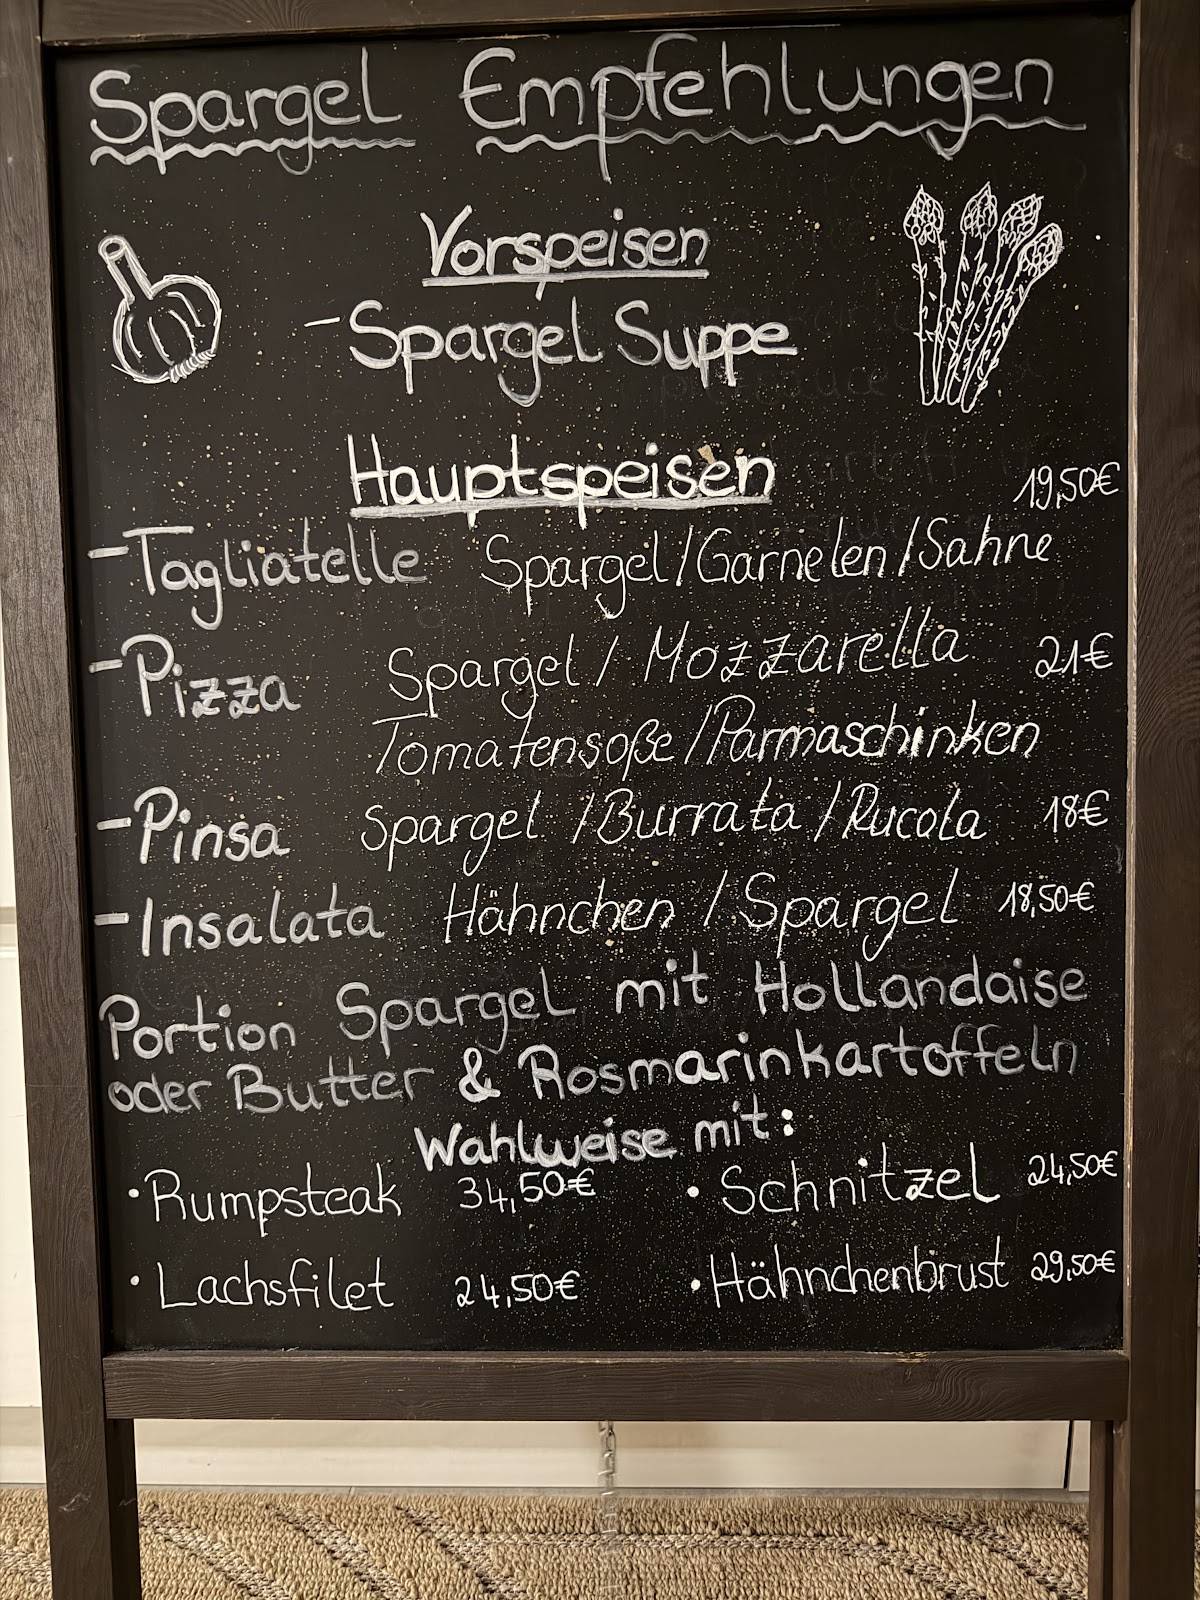 Spargel Empfehlungen
Vorspeisen
- Spargel Suppe
Hauptspeisen
19,50€
- Tagliatelle Spargel/Garnelen/Sahne
- Pizza Spargel/Mozzarella 21€
Tomatensoße/Parmaschinken
- Pinsa Spargel/Burrata/Rucola 18€
- Insalata Hähnchen/Spargel 18,50€
Portion Spargel mit Hollandaise
oder Butter & Rosmarinkartoffeln
Wahlweise mit:
• Rumpsteak 34,50€ • Schnitzel 24,50€
• Lachsfilet 24,50€ • Hähnchenbrust 29,50€